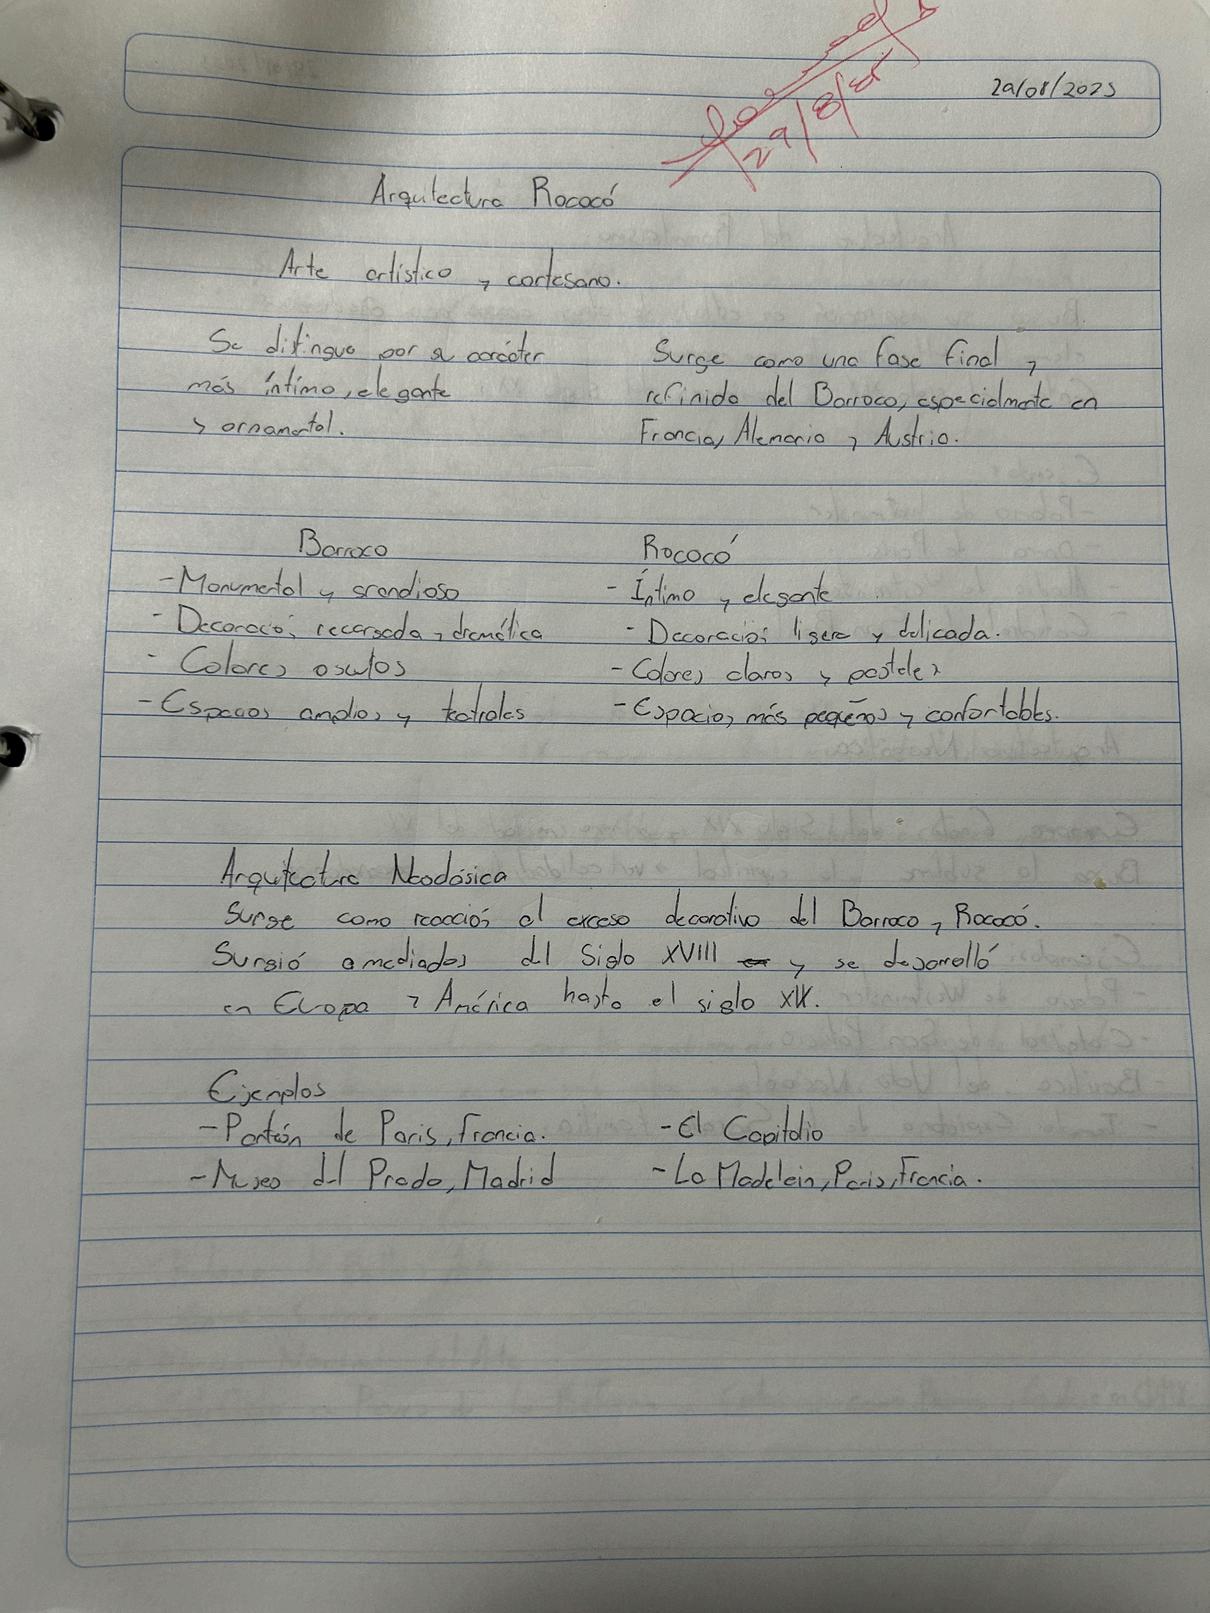 29/08/2025
29/8/25
Arquitectura Rococó
Arte artístico y cortesano.
Se distingue por su carácter
más íntimo, elegante
y ornamental.
Surge como una fase final y
refinida del Barroco, especialmente en
Francia, Alemania y Austria.
Barroco
- Monumental y grandioso
- Decoración recargada y dramática
- Colores oscuros
- Espacios amplios y teatrales
Rococó
- Íntimo y elegante
- Decoración ligera y delicada.
- Colores claros y pasteles
- Espacios más pequeños y confortables.
Arquitectura Neoclásica
Surge como reacción al exceso decorativo del Barroco y Rococó.
Surgió a mediados del Siglo XVIII y se desarrolló
en Europa y América hasta el siglo XIX.
Ejemplos
- Panteón de Paris, Francia.
- El Capitolio
- Museo del Prado, Madrid
- La Madelein, Paris, Francia.